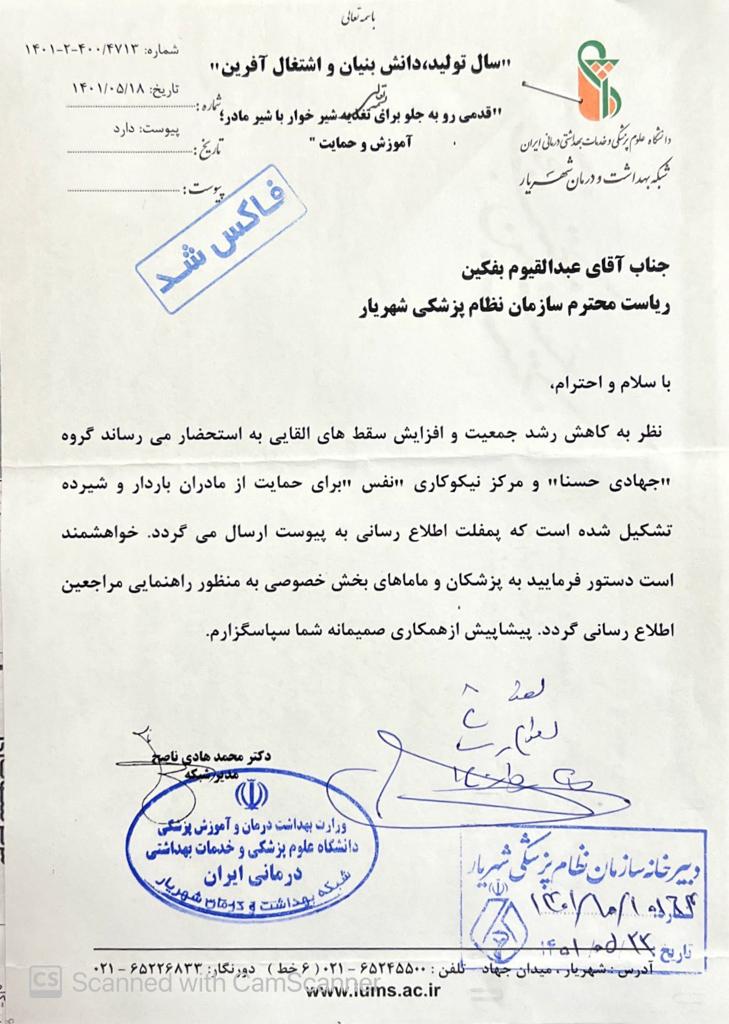 باسمه تعالی
"سال تولید،دانش بنیان و اشتغال آفرین"
"قدمی رو به جلو برای تغذیه شیر خوار با شیر مادر؛
آموزش و حمایت "
شماره: ۱۴۰۱-۲-۴۰۰/۴۷۱۳
تاریخ: ۱۴۰۱/۰۵/۱۸
شماره:
پیوست: دارد
تاریخ:
پیوست:
دانشگاه علوم پزشکی و خدمات بهداشتی درمانی ایران
شبکه بهداشت و درمان شهریار
فاکس شد
جناب آقای عبدالقیوم بفکین
ریاست محترم سازمان نظام پزشکی شهریار
با سلام و احترام،
نظر به کاهش رشد جمعیت و افزایش سقط های القایی به استحضار می رساند گروه
"جهادی حسنا" و مرکز نیکوکاری "نفس "برای حمایت از مادران باردار و شیرده
تشکیل شده است که پمفلت اطلاع رسانی به پیوست ارسال می گردد. خواهشمند
است دستور فرمایید به پزشکان و ماماهای بخش خصوصی به منظور راهنمایی مراجعین
اطلاع رسانی گردد. پیشاپیش ازهمکاری صمیمانه شما سپاسگزارم.
دکتر محمد هادی ناصح
مدیر شبکه
وزارت بهداشت درمان و آموزش پزشکی
دانشگاه علوم پزشکی و خدمات بهداشتی
درمانی ایران
شبکه بهداشت و درمان شهریار
دبیرخانه سازمان نظام پزشکی شهریار
تاریخ ۱۴۰۱/۰۵/۲۳
آدرس : شهریار ، میدان جهاد تلفن : ۶۵۲۴۵۵۰۰ - ۰۲۱ ( ۶ خط ) دورنگار: ۶۵۲۲۶۸۳۳ - ۰۲۱
www.iums.ac.ir
CS Scanned with CamScanner